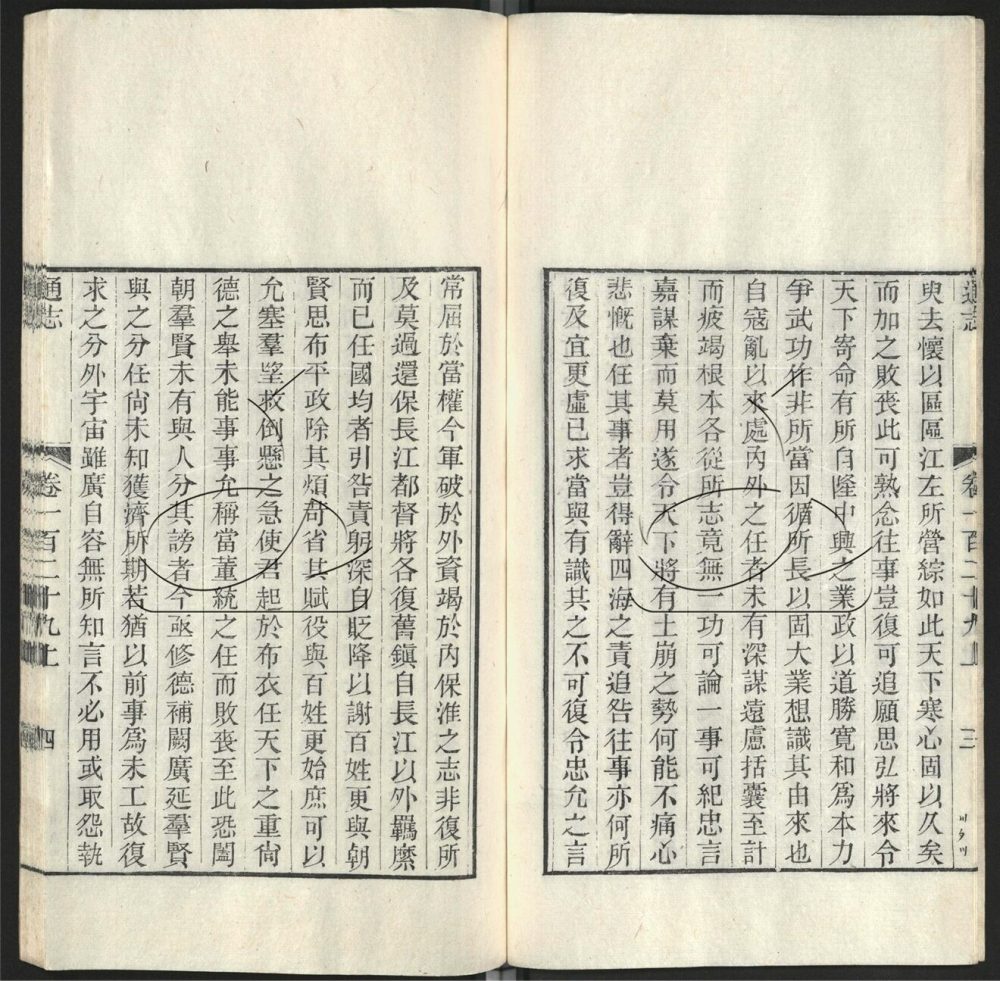 通志
卷一百二十九上
三
臾去懷以區區江左所營綜如此天下寒心固以久矣
而加之敗喪此可熟念往事豈復可追願思弘將來令
天下寄命有所自隆中興之業政以道勝寬和爲本力
爭武功作非所當因循所長以固大業想識其由來也
自寇亂以來處內外之任者未有深謀遠慮括囊至計
而疲竭根本各從所志竟無一功可論一事可紀忠言
嘉謀棄而莫用遂令天下將有土崩之勢何能不痛心
悲慨也任其事者豈得辭四海之責追咎往事亦何所
復及宜更虛己求當與有識其之不可復令忠允之言
常屈於當權今軍破於外資竭於內保淮之志非復所
及莫過還保長江都督將各復舊鎮自長江以外羈縻
而已任國均者引咎責躬深自貶降以謝百姓更與朝
賢思布平政除其煩苛省其賦役與百姓更始庶可以
允塞羣望救倒懸之急使君起於布衣任天下之重尙
德之舉未能事事允稱當董統之任而敗喪至此恐闔
朝羣賢未有與人分其謗者今亟修德補闕廣延羣賢
與之分任尙未知獲濟所期若猶以前事爲未工故復
求之分外宇宙雖廣自容無所知言不必用或取怨執
通志
卷一百二十九上
四